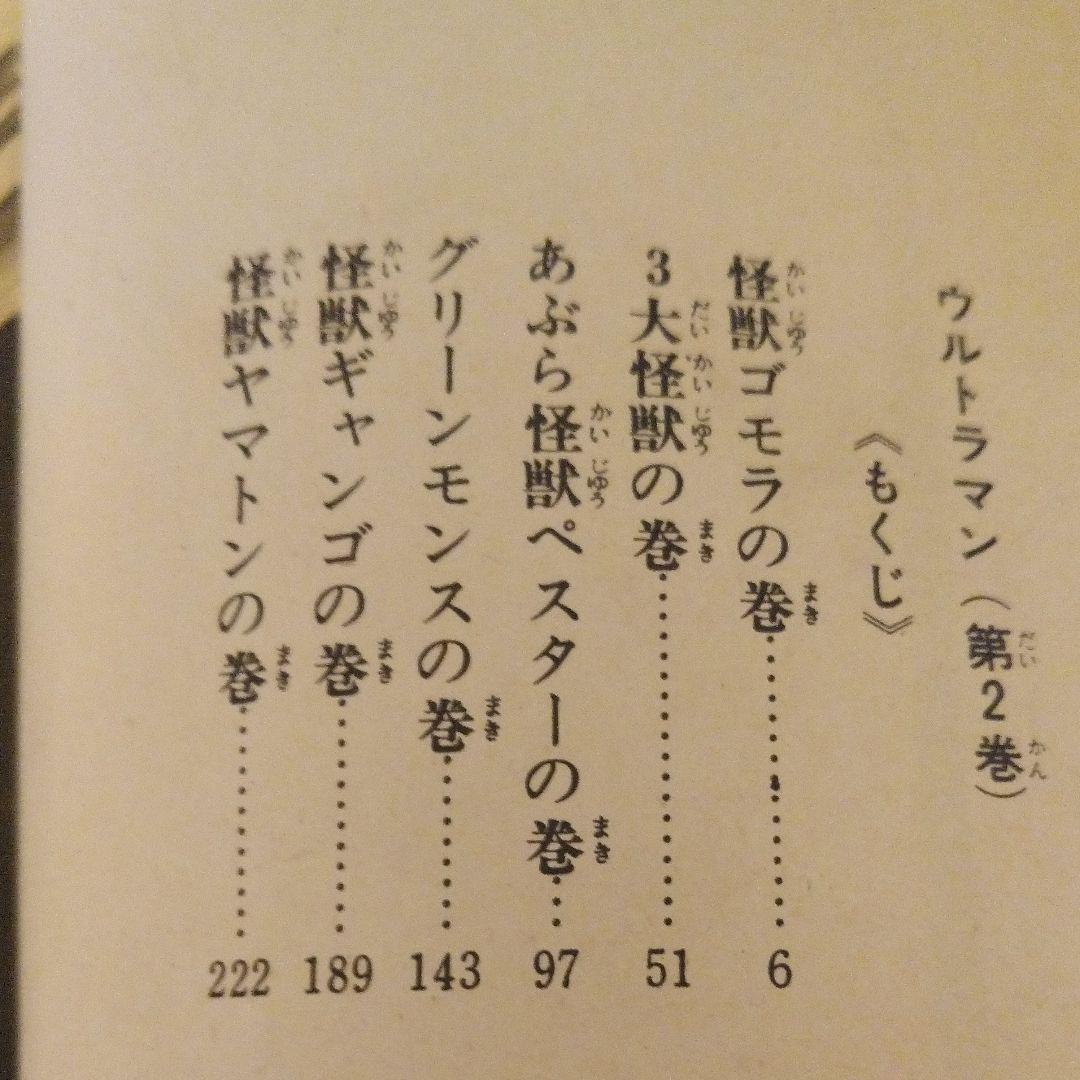 ウルトラマン（第2巻）
《もくじ》
怪獣ゴモラの巻…………6
3大怪獣の巻…………51
あぶら怪獣ペスターの巻…97
グリーンモンスの巻………143
怪獣ギャンゴの巻…………189
怪獣ヤマトンの巻…………222